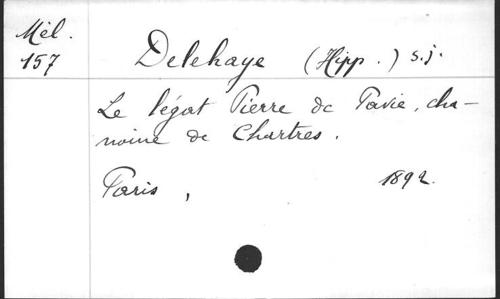 Mél.
157
Delehaye (Hipp.) s.j.
Le légat Pierre de Pavie, cha-
noine de Chartres.
Paris, 1892.